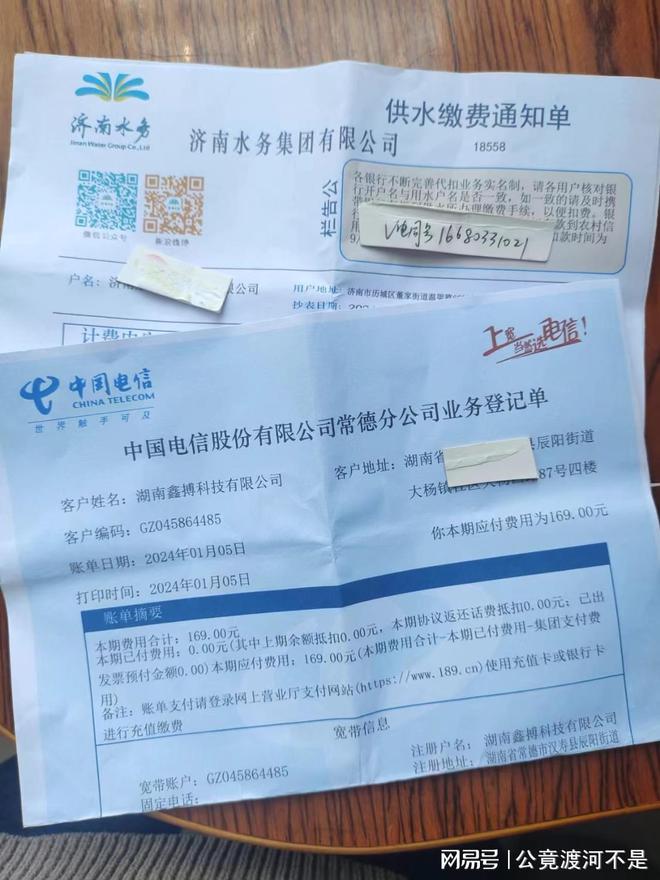 济南水务
Jinan Water Group Co.,Ltd
济南水务集团有限公司
供水缴费通知单
18558
微信公众号
栏告公
各银行不断完善代扣业务实名制，请各用户核对银
行开户名与用水户名是否一致，如一致的请及时携
办理缴费手续，以便扣费。银
款到农村信
扣款时间为
V电同号16680331021
户名：
有限公司
用户地址：济南市历城区董家街道温
抄表日期：
中国电信
CHINA TELECOM
世界触手可及
上宽
当然选电信！
中国电信股份有限公司常德分公司业务登记单
客户姓名：湖南鑫搏科技有限公司
客户地址：湖南省
辰阳街道
大杨镇
87号四楼
客户编码：GZ045864485
你本期应付费用为169.00元
账单日期：2024年01月05日
打印时间：2024年01月05日
账单摘要
本期费用合计：169.00元
本期已付费用：0.00元(其中上期余额抵扣0.00元，本期协议返还话费抵扣0.00元；已出
发票预付金额0.00)本期应付费用：169.00元(本期费用合计-本期已付费用-集团支付费
用)
备注：账单支付请登录网上营业厅支付网站(https://www.189.cn)使用充值卡或银行卡
进行充值缴费
宽带信息
宽带账户：GZ045864485
注册户名：湖南鑫搏科技有限公司
固定电话：
注册地址：湖南省常德市汉寿县辰阳街道
网易号 | 公竟渡河不是